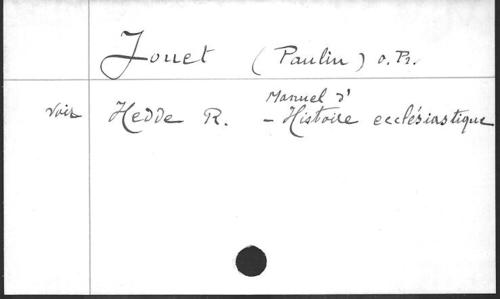 Jouet (Paulin) O.Pr.
voir Hedde R. - Manuel d'Histoire ecclésiastique